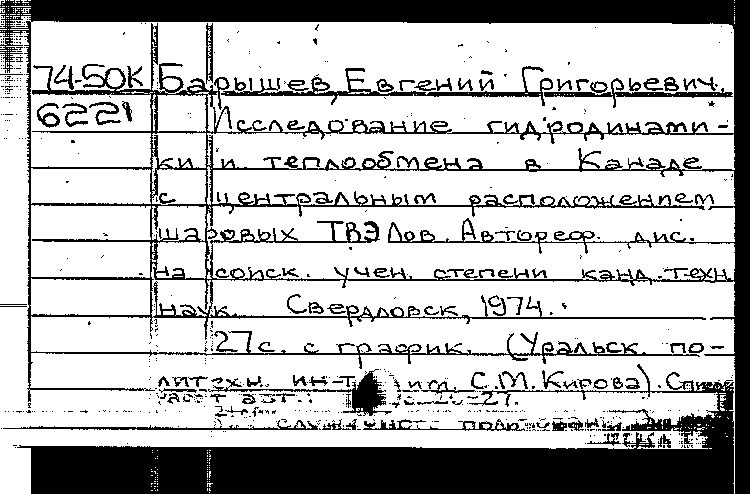 74-50К Барышев, Евгений Григорьевич.
6221 Исследование гидродинами-
ки и теплообмена в Канаде
с центральным расположением
шаровых ТВЭЛов. Автореф. дис.
на соиск. учен. степени канд. техн.
наук. Свердловск, 1974.
27с. с график. (Уральск. по-
литехн. ин-т им. С.М.Кирова). Список
работ авт.: с. 26-27.